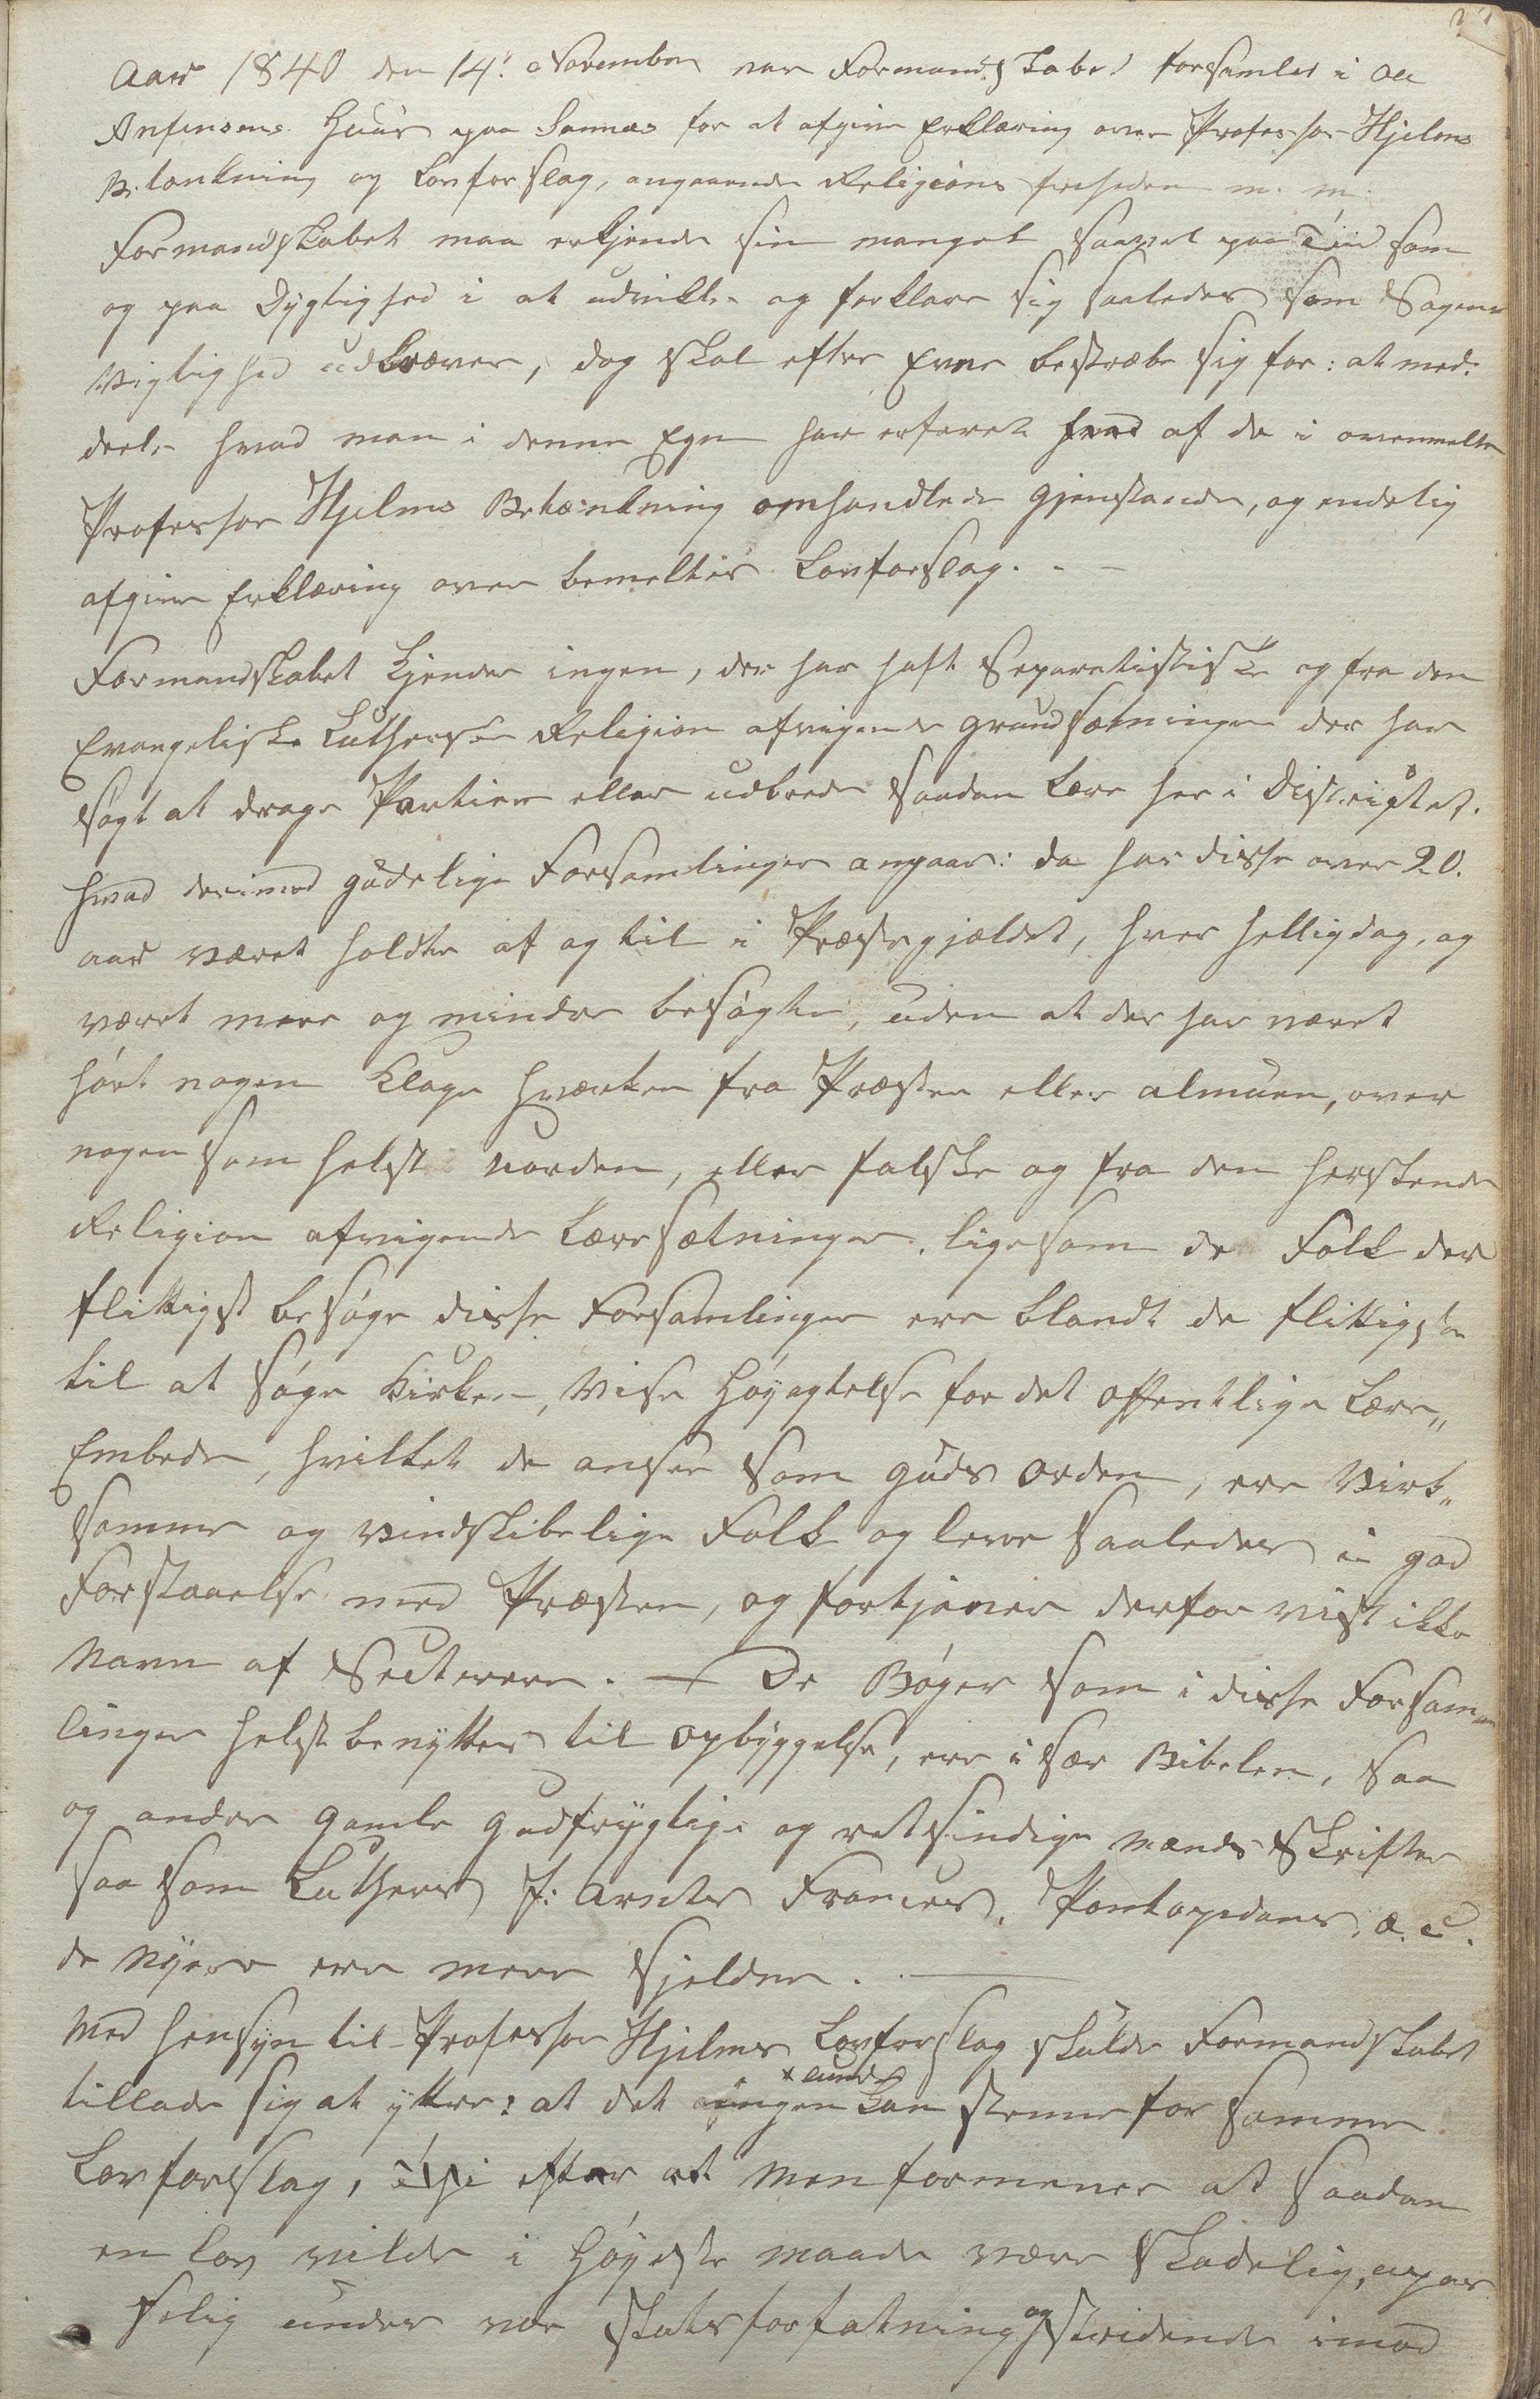 Aar 1840 den 14: November var Formandskabet forsamlet i Ole
Ansensens Huus paa Sannæs for at afgive Erklæring over Professor Hjelms
Betænkning og Lovforslag, angaaende Religions friheden m. m.
Formandskabet maa erkjende sin mangel saavel paa Tiid som
og paa Dygtighed i at udvikle og forklare sig saaledes som Sagens
Vigtighed udkræver, dog skal efter Evne bestræbe sig for: at med-
deele hvad man i denne Egn har erfaret hvad af de i ovenmelte
Professor Hjelms Betænkning omhandlede Gjenstande, og endelig
afgive Erklæring over bemeltes Lovforslag. - -
Formandskabet kjender ingen, der har haft Separatistiske og fra den
Evangeliske Lutherske Religion afvigende grundsætninger der har
søgt at drage Partier eller udbrede saadan Lære her i Districtet.
Hvad derimod gudelige Forsamlinger angaar: da har disse over 20.
aar været holdte af og til i Præstegjældet, hver helligdag, og
været mere og mindre besøgte, uden at der har været
hørt nogen Klage hværken fra Præsten eller almuen, over
nogen som helst uorden, eller falske og fra den herskende
Religion afvigende Læresætninger. ligesom de Folk der
flittigst besøge disse Forsamlinger ere blandt de flittigste
til at søge Kirken, Vise Høyagtelse for det offentlige Lære„
Embede, hvilket de ansee som Guds Orden, ere Virk„
somme og vindskibelige Folk og leve saaledes i god
Forstaaelse med Præsten, og fortjener derfor vist ikke
Navn af Secterere. — De Bøger som i disse Forsam„
linger helst benyttes til Opbyggelse, ere i sær Bibelen, saa
og andre gamle gudfrygtige og retsindige Mænds Skrifter
saa som Luthers J: Arntes Frances, Pontopidans, æ. c.
de Nyere ere mere sjelden. —
Med Hensyn til Professor Hjelms Lovforslag skulde Formandskabet
tillade sig at yttre: at det ingenlunde kan stemme for samme
Lovforslag, efter at man formener at saadan
en lov vilde i Høyeste maade være skadelig,
selig under vor Statsforfatning og stridende imod